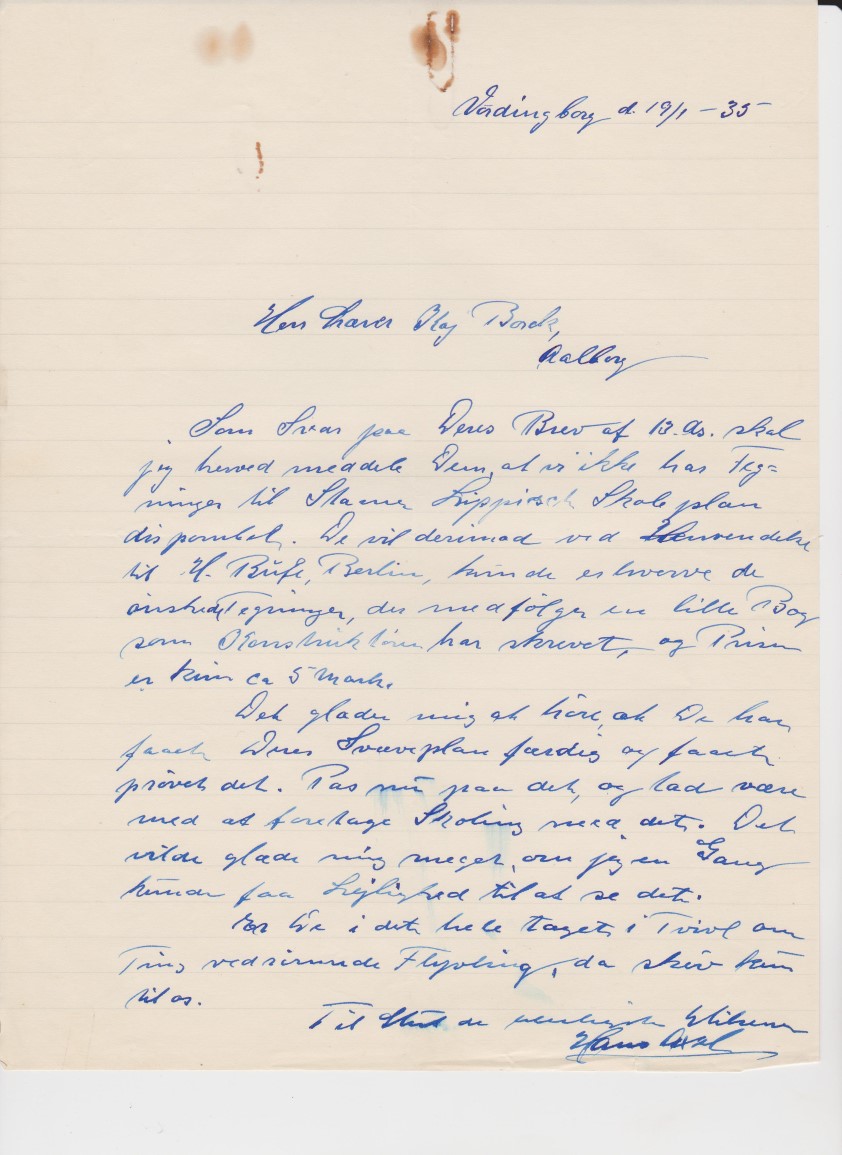 Vordingborg d. 19/1 - 35
Herr Lærer Kaj Borch,
Aalborg
Som Svar paa Deres Brev af 13. ds. skal
jeg herved meddele Dem, at vi ikke har Teg=
ninger til Stamer Lippisch Skoleplan
disponibel. De vil derimod ved Henvendelse
til H. Büfe, Berlin, kunde erhverve de
ønskede Tegninger, der medfølger en lille Bog
som Konstruktøren har skrevet, og Prisen
er kun ca 5 Mark.
Det glæder mig at höre, at De har
faaet Deres Svæveplan færdig og faaet
prøvet det. Pas nu paa det, og lad være
med at foretage Skoling med det. Det
vilde glæde mig meget, om jeg en Gang
kunde faa Lejlighed til at se det.
Er De i det hele taget i Tvivl om
Ting vedrörende Flyvning, da skriv kun
til os.
Til Slut de venligste Hilsener
Hans Axel